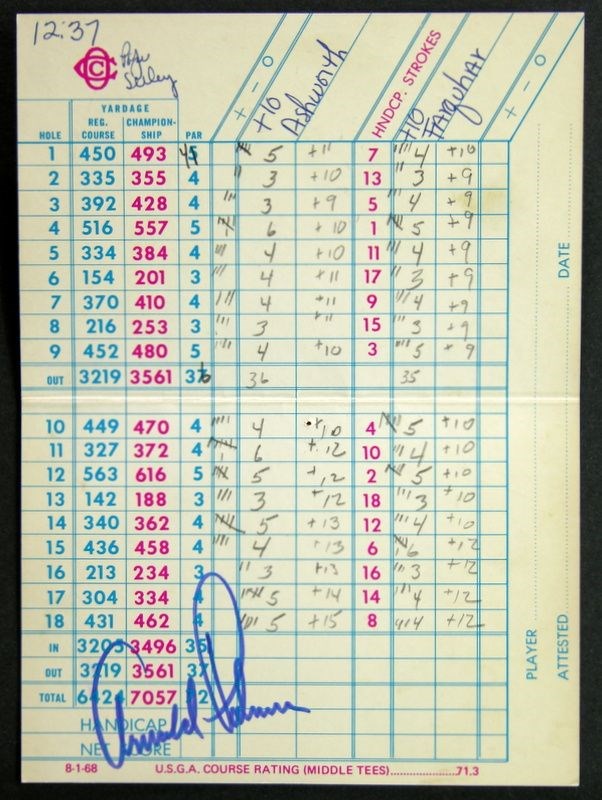 12:37
YARDAGE + - O +10 Ashworth HNDCP. STROKES +10 FARquhAR + - O
HOLE REG. COURSE CHAMPIONSHIP PAR
1 450 493 4 5 +11 7 4 +10
2 335 355 4 3 +10 13 3 +9
3 392 428 4 3 +9 5 4 +9
4 516 557 5 6 +10 1 5 +9
5 334 384 4 4 +10 11 4 +9
6 154 201 3 4 +11 17 3 +9
7 370 410 4 4 +11 9 4 +9
8 216 253 3 3 +11 15 3 +9
9 452 480 5 4 +10 3 5 +9
OUT 3219 3561 36 36 35
10 449 470 4 4 +10 4 5 +10
11 327 372 4 6 +12 10 4 +10
12 563 616 5 5 +12 2 5 +10
13 142 188 3 3 +12 18 3 +10
14 340 362 4 5 +13 12 4 +10
15 436 458 4 4 +13 6 6 +12
16 213 234 3 3 +13 16 3 +12
17 304 334 4 5 +14 14 4 +12
18 431 462 4 5 +15 8 4 +12
IN 3205 3496 35
OUT 3219 3561 37
TOTAL 6424 7057 72
HANDICAP
NET SCORE
Arnold Palmer
8-1-68 U.S.G.A. COURSE RATING (MIDDLE TEES)....................71.3
PLAYER
ATTESTED DATE